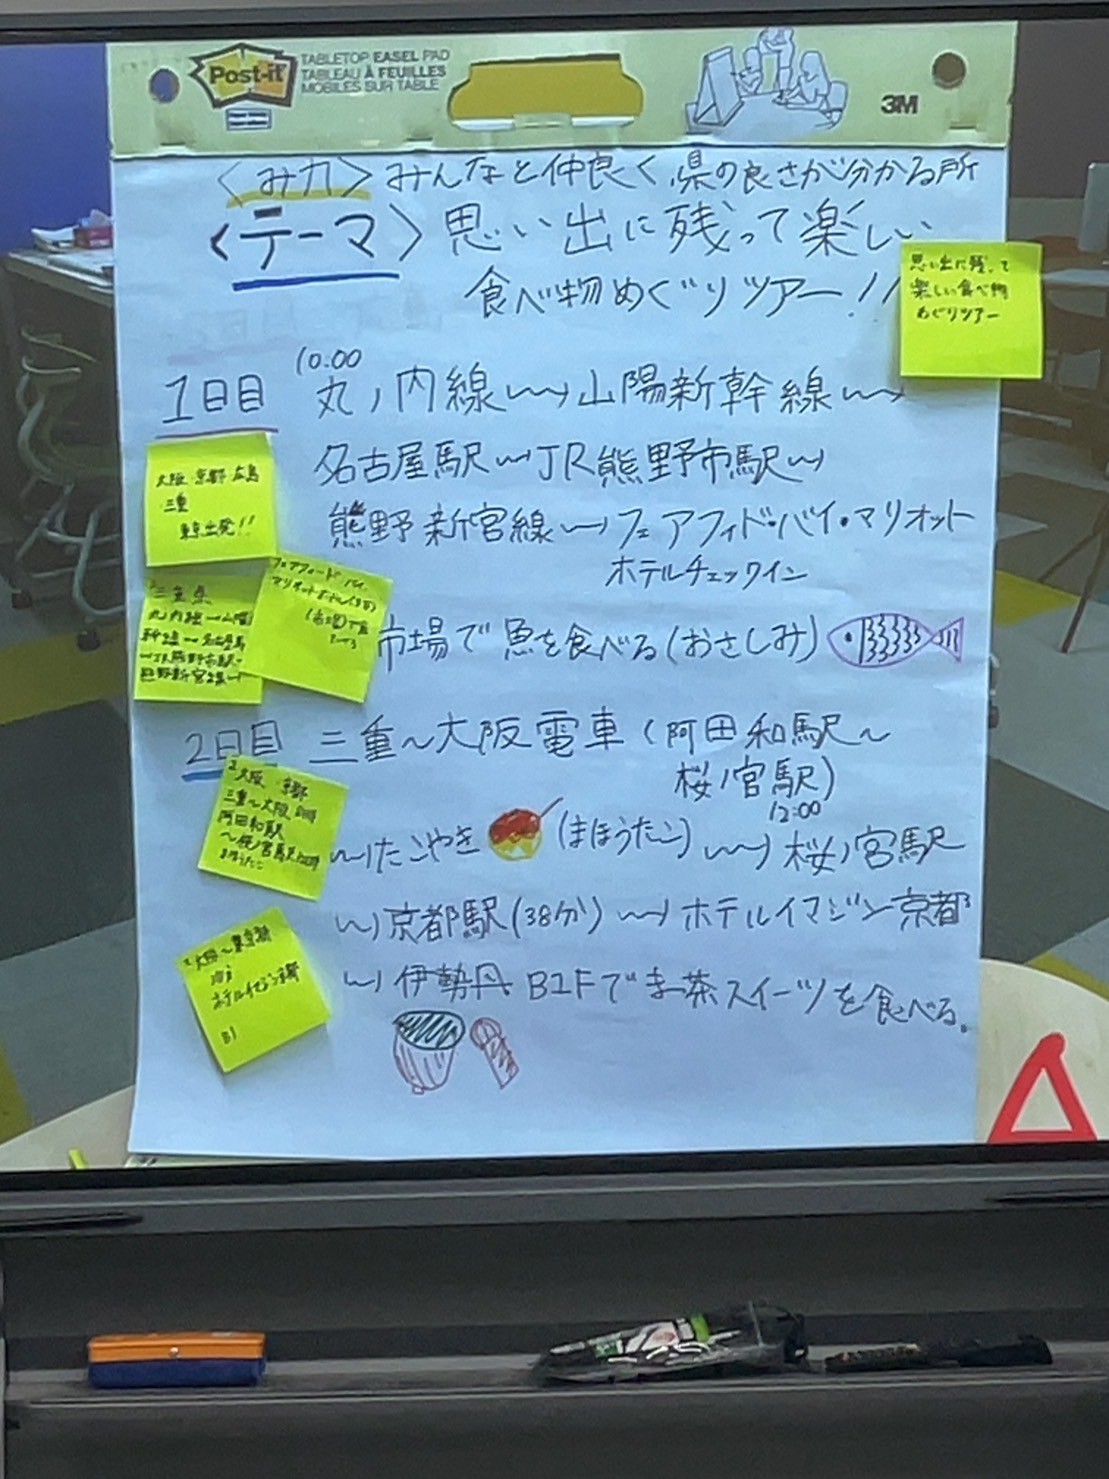 Post-it
TABLETOP EASEL PAD
TABLEAU À FEUILLES
MOBILES SUR TABLE
3M
〈み力〉みんなと仲良く、県の良さが分かる所
〈テーマ〉思い出に残って楽しい
食べ物めぐりツアー!!
思い出に残って
楽しい食べ物
めぐりツアー
10:00
1日目 丸ノ内線〜→山陽新幹線〜→
名古屋駅〜→JR熊野市駅〜→
熊野新宮線〜→フェアフィド・バイ・マリオット
ホテルチェックイン
大阪 京都 広島
三重
東京出発!!
市場で魚を食べる(おさしみ)
フェアフィード バイ
三重県
丸内線→山陽
JR熊野市駅→
熊野新宮線→
2日目 三重〜大阪電車(阿田和駅〜
桜ノ宮駅)
大阪 京都
三重〜大阪
阿田和駅
〜桜ノ宮駅
12:00
〜→たこやき(まほうたこ)〜→桜ノ宮駅
〜→京都駅(38分)〜→ホテルイマジン京都
〜→伊勢丹B1Fでま茶スイーツを食べる。
ホテルイマジン京都
B1